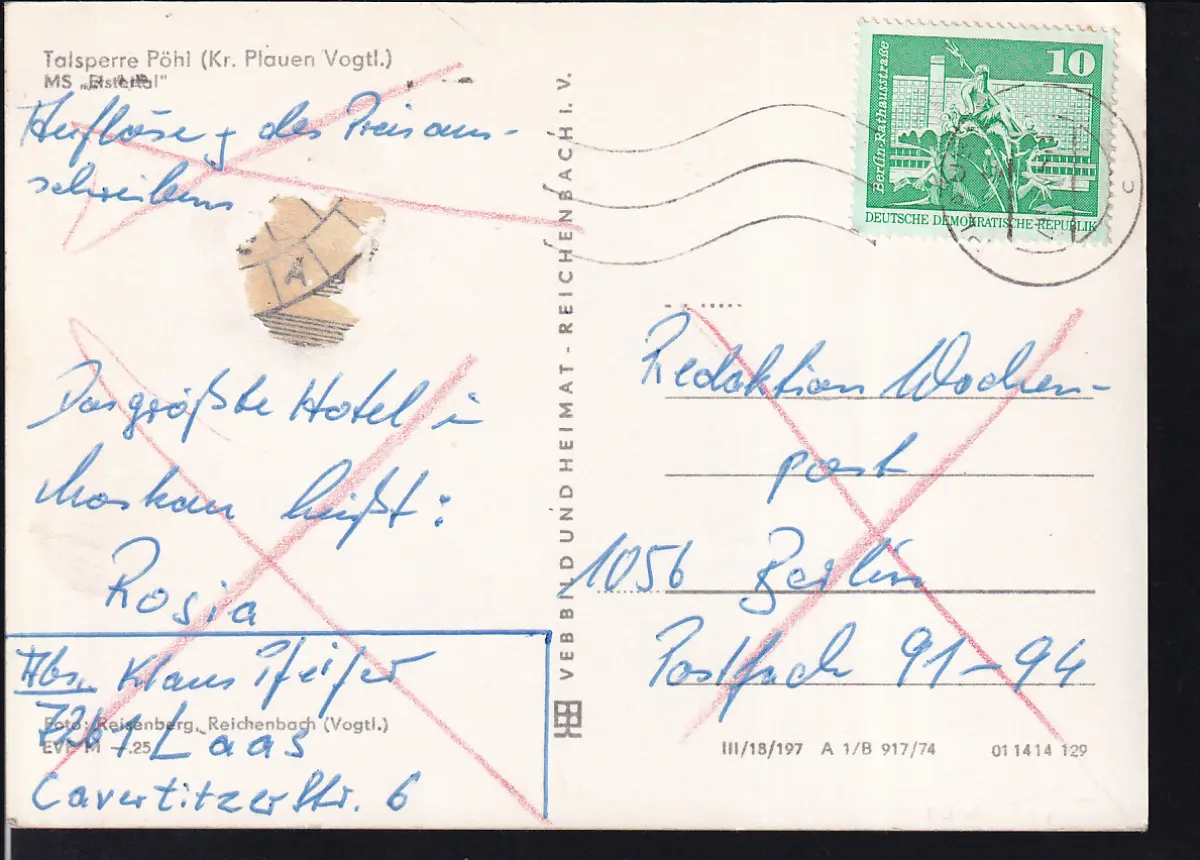 Talsperre Pöhl (Kr. Plauen Vogtl.)
MS „Elstertal"
Auflösung des Preisaus-
schreibens
A
Das größte Hotel in
Moskau heißt:
Rosia
Abs. Klaus Pfeifer
7261 Laas
Cavertitzer Str. 6
Foto: Reisenberg, Reichenbach (Vogtl.)
EVP M -.25
VEB BILD UND HEIMAT - REICHENBACH I. V.
10
Berlin-Rathausstraße
DEUTSCHE DEMOKRATISCHE REPUBLIK
c
Redaktion Wochen-
post
1056 Berlin
Postfach 91-94
III/18/197 A 1/B 917/74 01 14 14 129